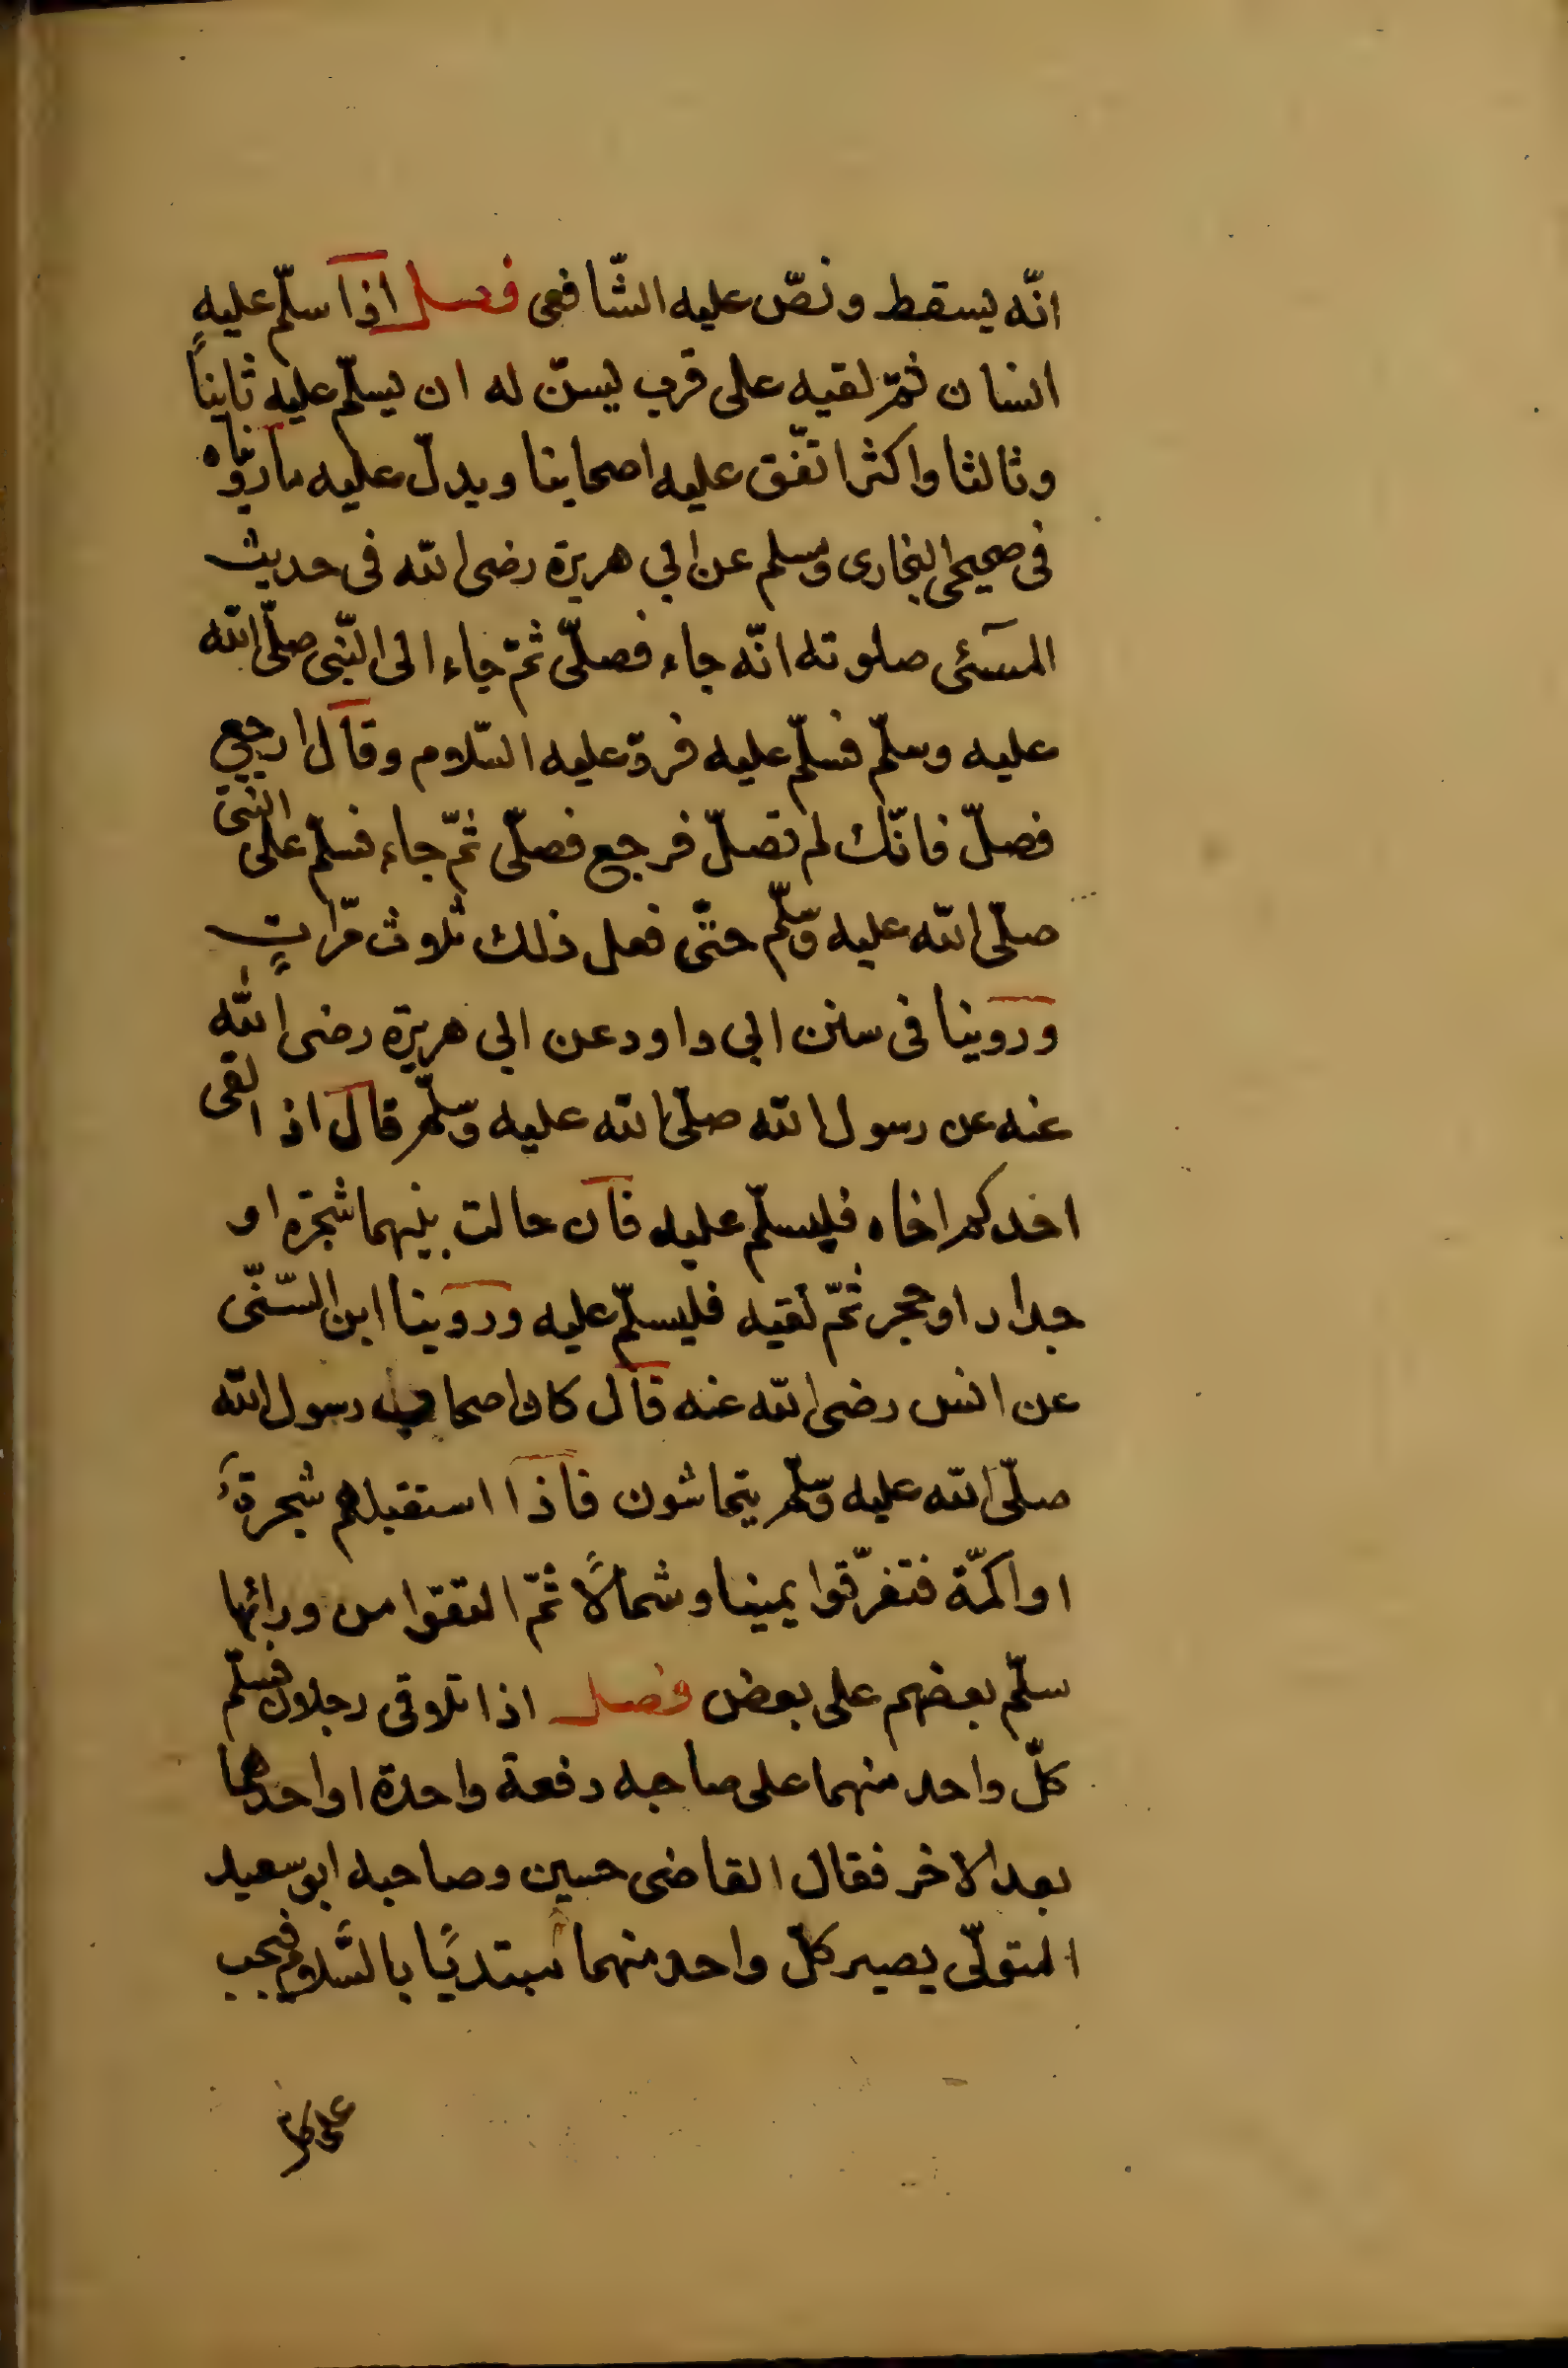 انّه يسقط ونصّ عليه الشّافعى فصل اذا سلّم عليهِ
انسان ثمّ لقيه على قرب ليسنّ له ان يسلّم عليه ثانياً
وثالثا واكثر اتّفق عليه اصحابنا ويدلّ عليه ما رويناه
فى صحيحى البخارى ومسلم عن ابي هريرة رضى الله فى حديث
المسئى صلوته انّه جاء فصلّى ثمّ جاء الى النّبى صلّى الله
عليه وسلّم فسلّم عليه فردّ عليه السّلام وقال ارجع
فصلّ فانّك لم تصلّ فرجع فصلّى ثمّ جاء فسلّم على النبىّ
صلّى الله عليه وسلّم حتّى فعل ذلك ثلوث مرّاتٍ
وروينا فى سنن ابى داود عن ابي هريرة رضى الله
عنه عن رسول الله صلّى الله عليه وسلّم قال اذا لقى
احدكم اخاه فليسلّم عليه فان حالت بينهما شجرة او
جدار او حجر ثمّ لقيه فليسلّم عليه وروينا ابن السّنّى
عن انس رضى الله عنه قال كان اصحاب رسول الله
صلّى الله عليه وسلّم يتماشون فاذا استقبلهم شجرةٌ
او اكمّة فتفرّقوا يمينا وشمالًا ثمّ التقوا من ورائها
سلّم بعضهم على بعض فصل اذا تلوقى رجلان فسلّم
كلّ واحد منهما على صاحبه دفعة واحدة او احدهما
بعد الاخر فقال القاضى حسين وصاحبه ابو سعيد
المتولّى يصير كلّ واحد منهما مبتديًا بالسّلام فيجب
على كل